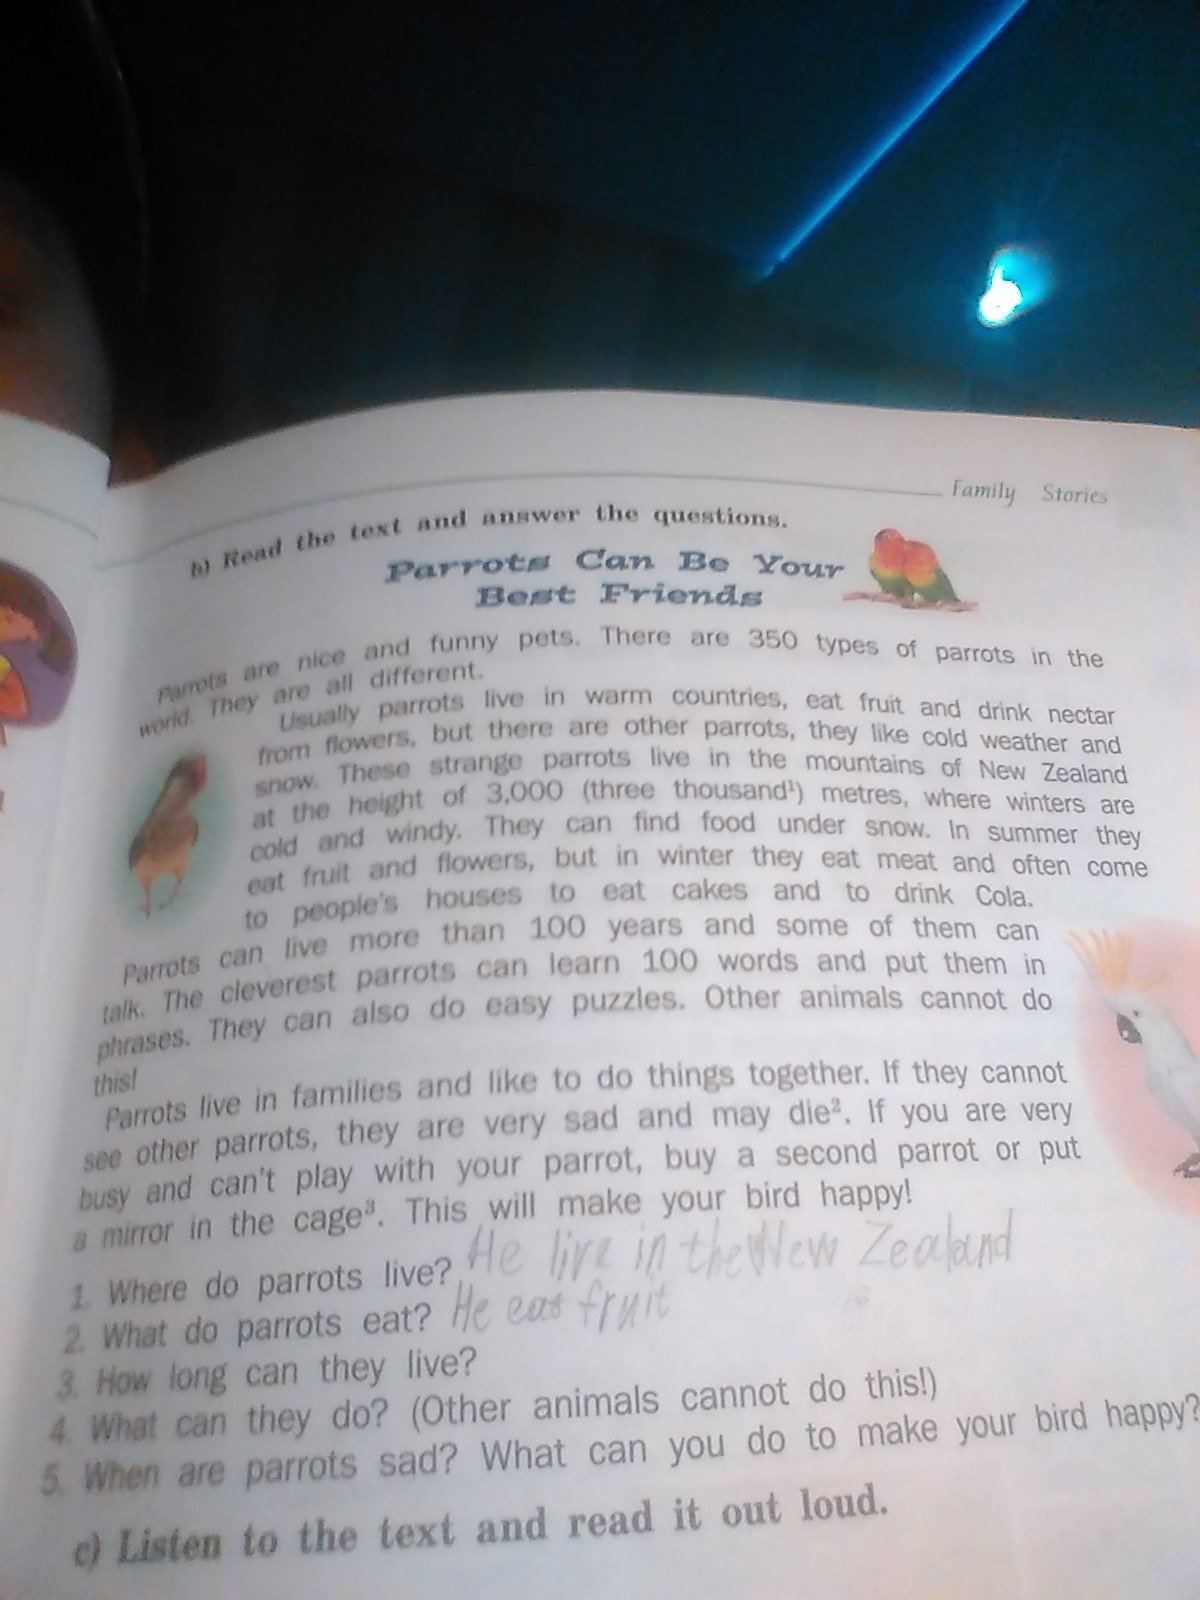 Family Stories
b) Read the text and answer the questions.
Parrots Can Be Your
Best Friends
Parrots are nice and funny pets. There are 350 types of parrots in the
world. They are all different.
Usually parrots live in warm countries, eat fruit and drink nectar
from flowers, but there are other parrots, they like cold weather and
snow. These strange parrots live in the mountains of New Zealand
at the height of 3,000 (three thousand¹) metres, where winters are
cold and windy. They can find food under snow. In summer they
eat fruit and flowers, but in winter they eat meat and often come
to people's houses to eat cakes and to drink Cola.
Parrots can live more than 100 years and some of them can
talk. The cleverest parrots can learn 100 words and put them in
phrases. They can also do easy puzzles. Other animals cannot do
this!
Parrots live in families and like to do things together. If they cannot
see other parrots, they are very sad and may die². If you are very
busy and can't play with your parrot, buy a second parrot or put
a mirror in the cage³. This will make your bird happy!
1. Where do parrots live? He live in the New Zealand
2. What do parrots eat? He eat fruit
3. How long can they live?
4. What can they do? (Other animals cannot do this!)
5. When are parrots sad? What can you do to make your bird happy?
c) Listen to the text and read it out loud.